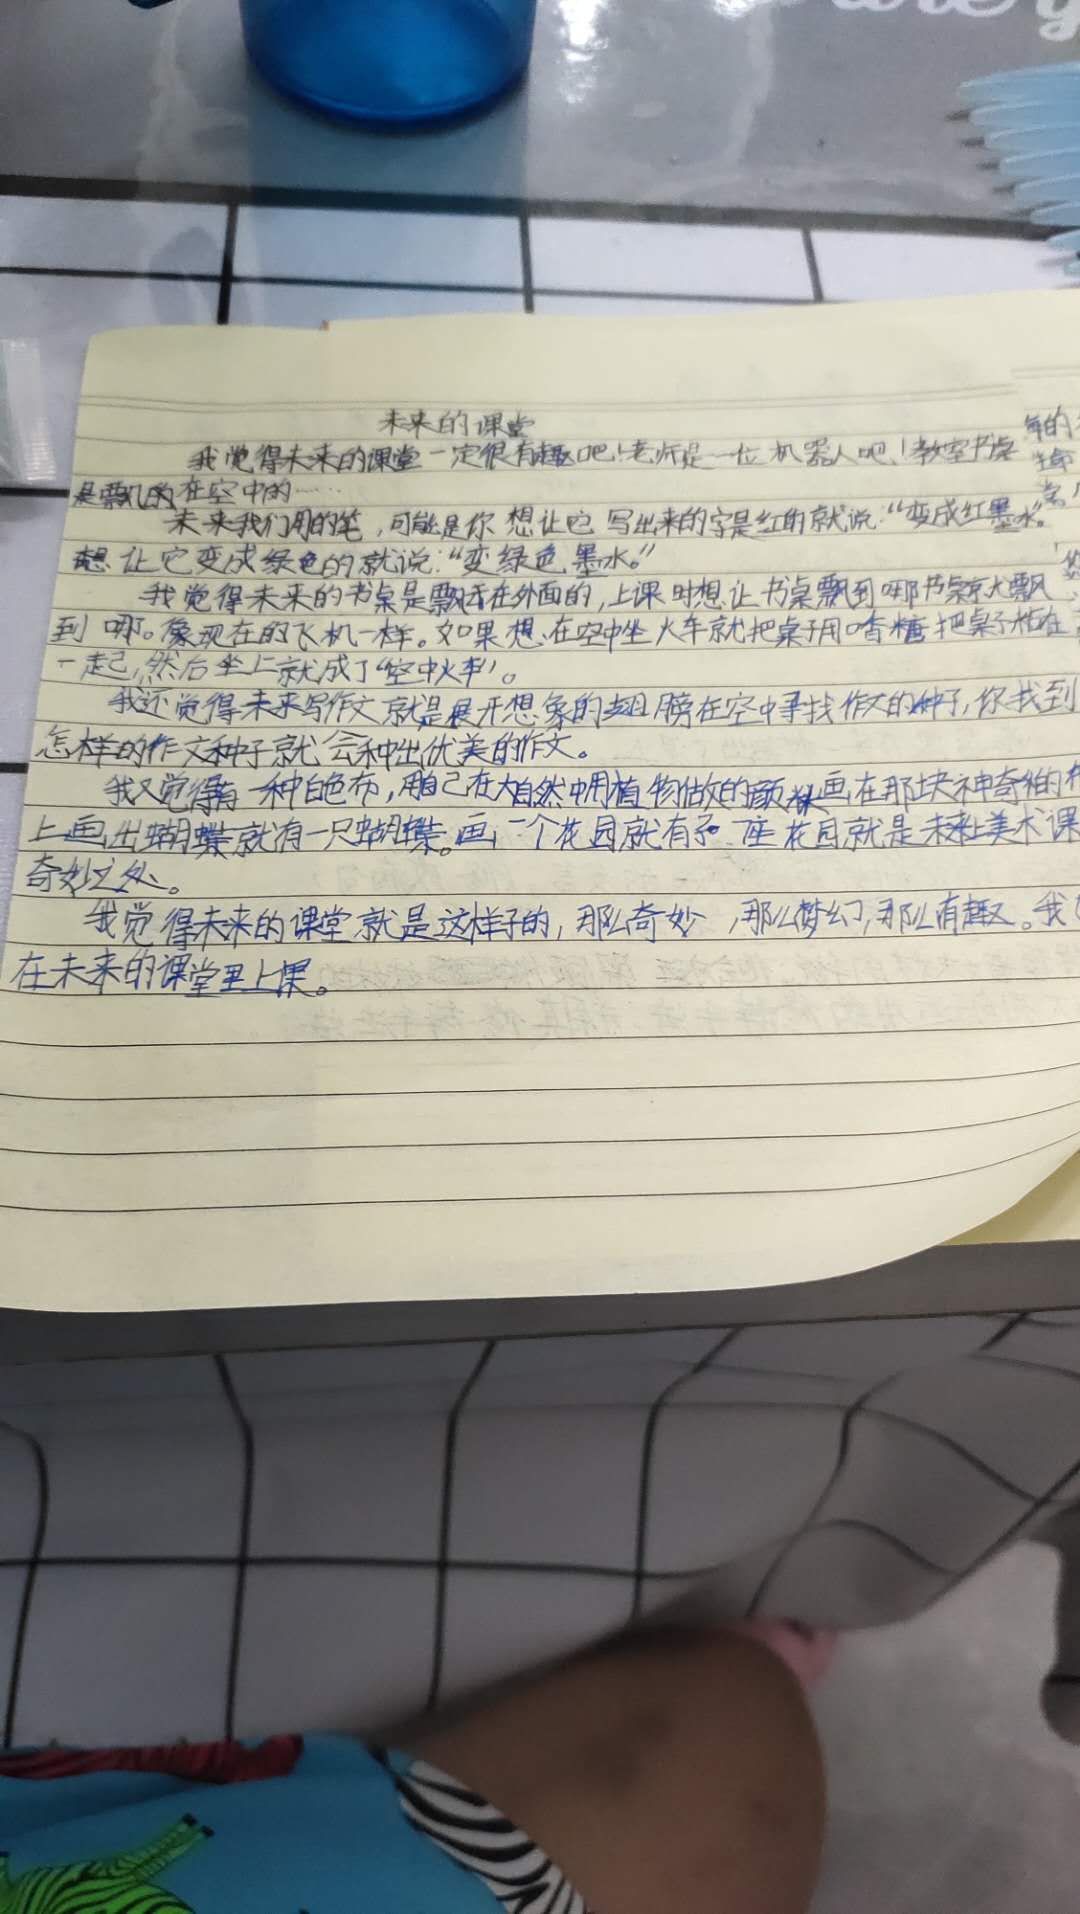 未来的课堂
我觉得未来的课堂一定很有趣吧！老师是一位机器人吧！教室书桌
是飘的在空中的……
未来我们用的笔，可能是你想让它写出来的字是红的就说：“变成红墨水。”
想让它变成绿色的就说：“变绿色墨水。”
我觉得未来的书桌是飘在外面的，上课时想让书桌飘到哪书桌就飘
到哪。像现在的飞机一样。如果想在空中坐火车就把桌子用口香糖把桌子粘在
一起，然后坐上就成了“空中火车”。
我还觉得未来写作文就是展开想象的翅膀在空中寻找作文的种子，你找到
怎样的作文种子就会种出优美的作文。
我又觉得有一种白色布，用自己在大自然中用植物做的颜料画在那块神奇的布
上画出蝴蝶就有一只蝴蝶。画一个花园就有了一座花园就是未来上美术课
奇妙之处。
我觉得未来的课堂就是这样子的，那么奇妙，那么梦幻，那么有趣。我
在未来的课堂里上课。